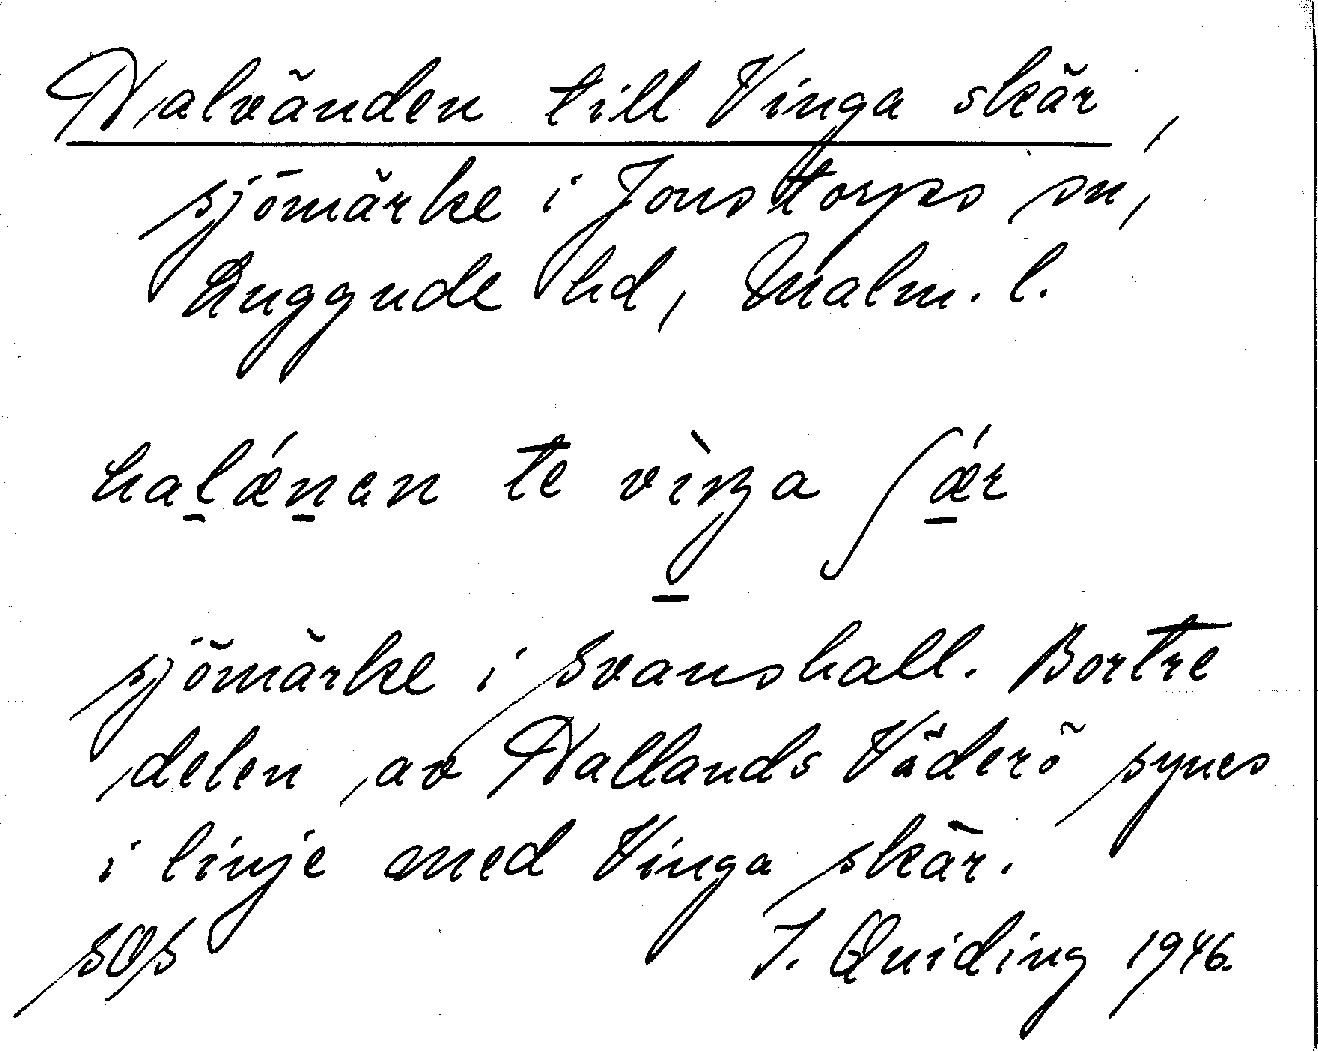 Halvänden till Vinga skär,
sjömärke i Jonstorps sn,
Luggude hd, Malm. l.
hal̠ǽn̠ən te vìŋ̠a ʃǽ̠r
sjömärke i Svanshall. Bortre
delen av Hallands Väderö synes
i linje med Vinga skär.
SOS J. Quiding 1946.